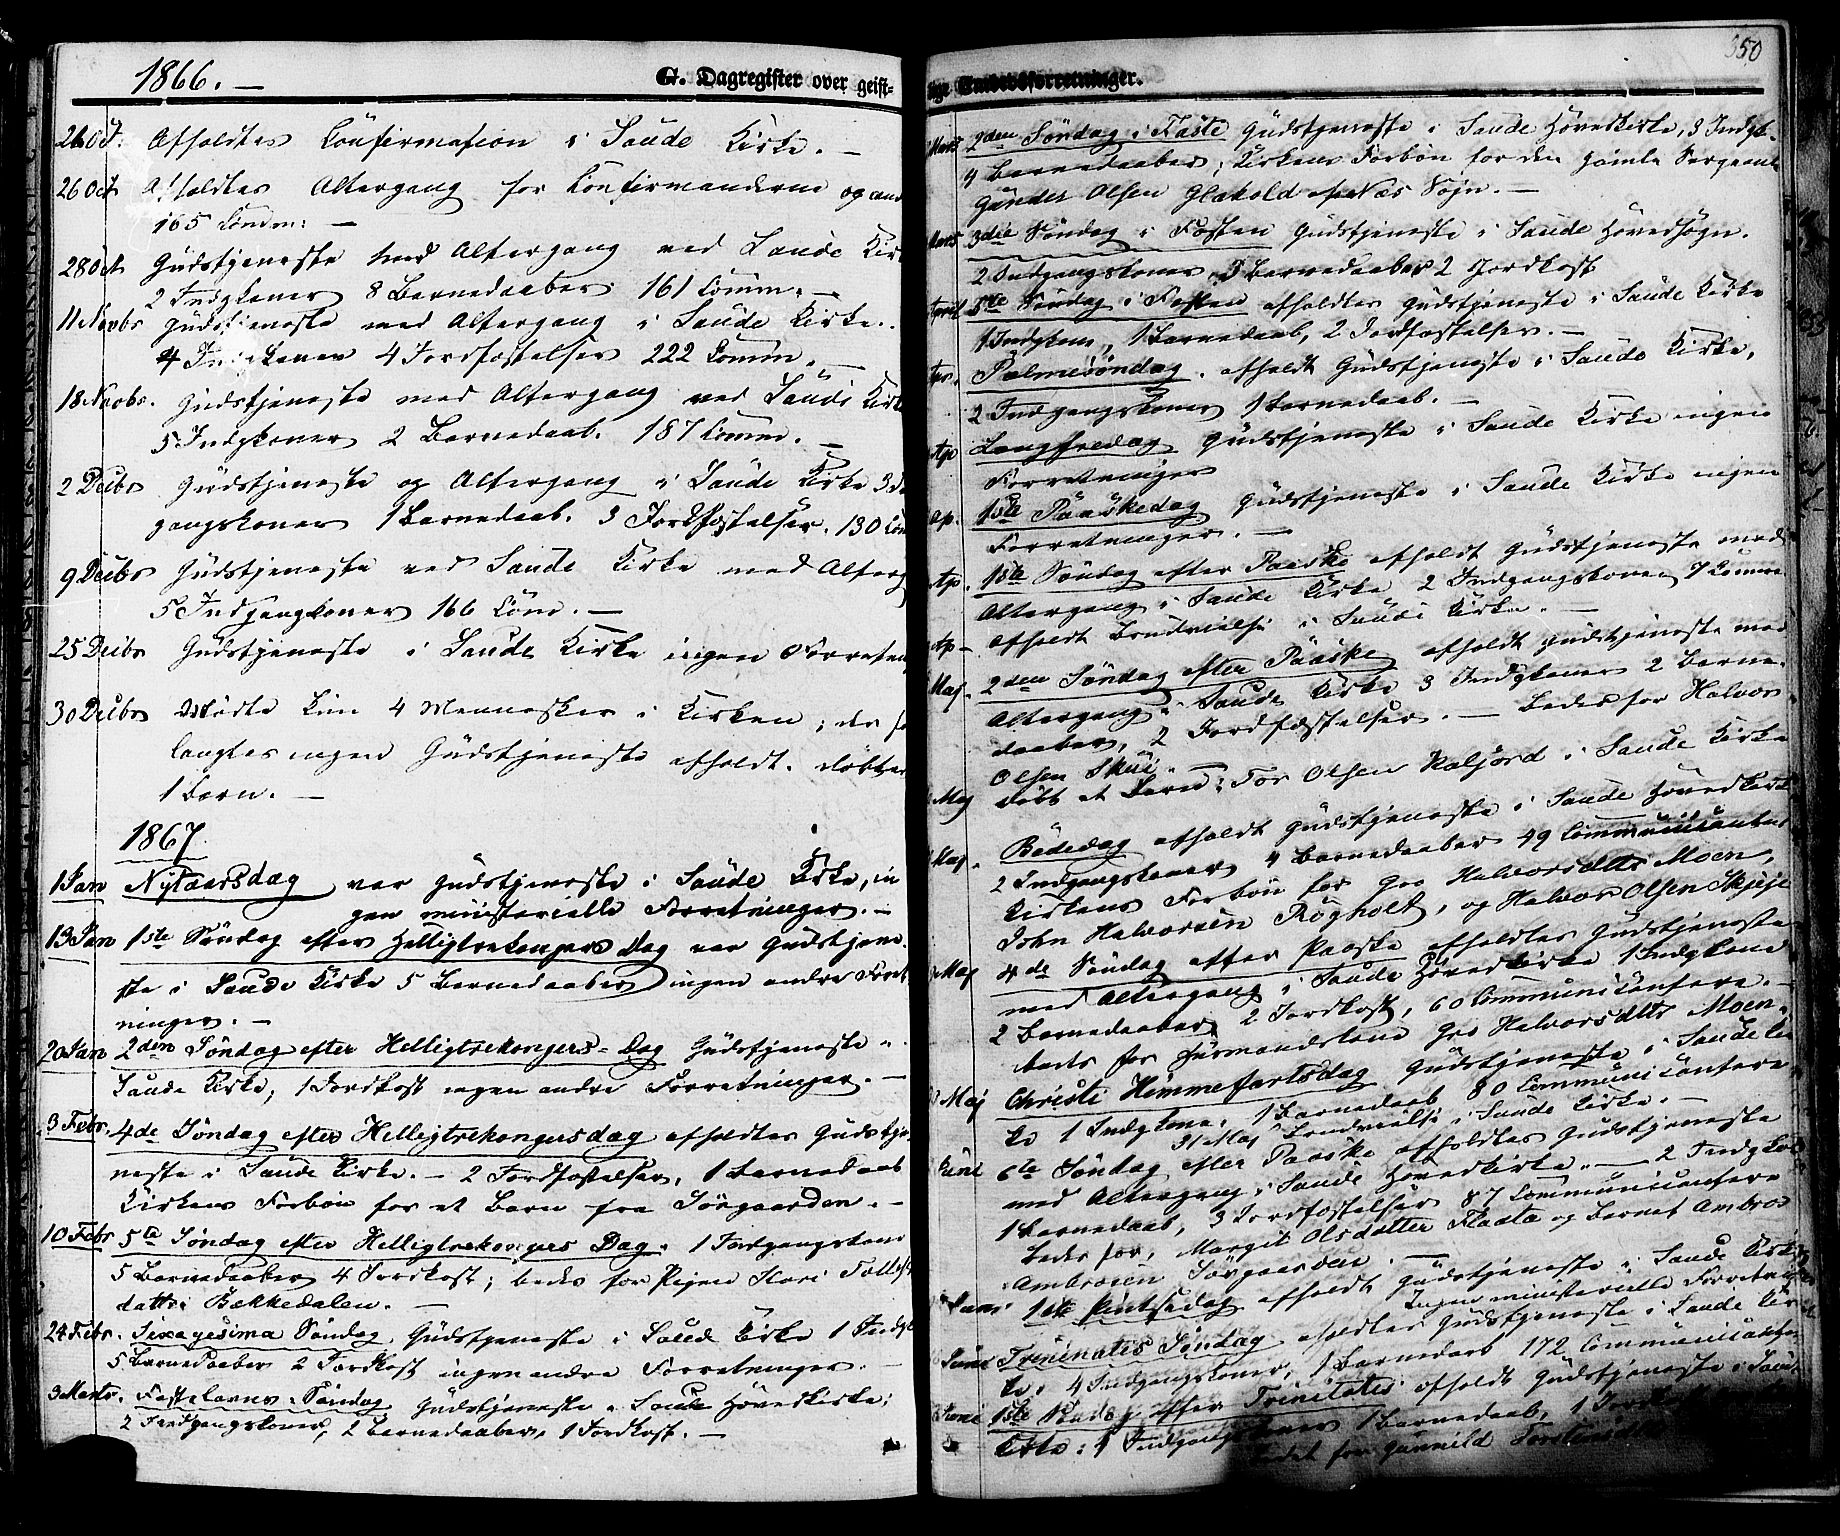 1866. —
G. Dagregister over geist=
26 Oct. Afholdtes Confirmation i Saude Kirke. —
26 Oct Afholdtes Altergang for Confirmanderne og
165 Comm: —
28 Oct Gudstjeneste med Altergang ved Saude Kir
2 Indgkoner 8 Barnedaaber 161 Comm. —
11 Novbr Gudstjeneste med Altergang i Saude Kirke.
4 Indgkoner 4 Jordfæstelser 222 Comm. —
18 Novbr. Gudstjeneste med Altergang ved Saude Kirk
5 Indgkoner 2 Barnedaab. 187 Comm. —
2 Decbr Gudstjeneste og Altergang i Saude Kirke 3
gangskoner 1 Barnedaab. 3 Jordfæstelser. 130 Com
9 Decbr Gudstjeneste ved Saude Kirke med Alterg
5 Indgangkoner 166 Com. —
25 Decbr Gudstjeneste i Saude Kirke ingen Forretn
30 Decbr Mødte kun 4 Mennesker i Kirken; der
langtes ingen Gudstjeneste afholdt. døbtes
1 Barn. —
1867.
1 Jan Nytaarsdag var Gudstjeneste i Saude Kirke, in
gen ministerielle Forretninger. —
13 Jan 1ste Søndag efter Helligtrekongers Dag var Gudstjene
ste i Saude Kirke 5 Barnedaaber ingen andre Forret
ninger. —
20 Jan 2den Søndag efter Helligtrekongers-Dag Gudstjeneste i
Saude Kirke, 1 Jordkast ingen andre Forretninger. —
3 Febr. 4de Søndag efter Helligtrekongersdag afholdtes Gudstje
neste i Saude Kirke. — 2 Jordfæstelser, 1 Barnedaab
Kirkens Forbøn for et Barn fra Sørgaarden. —
10 Febr 5te Søndag efter Helligtrekongers Dag. 1 Indgangskone
5 Barnedaaber 4 Jordkast; bedes for Pigen Kari
datter Bækkedalen. —
24 Febr. Sexagesima Søndag, Gudstjeneste i Saude Kirke 1 Indgk
5 Barnedaaber 2 Jordkast ingen andre Forretninger. —
3 Marts. Fastelavns Søndag Gudstjeneste i Saude Hovedkirke;
2 Indgangskoner, 2 Barnedaaber, 1 Jordkast. —
350
lige Embedsforretninger.
Marts 2den Søndag i Faste Gudstjeneste i Saude Hovedkirke, 3 Indgk.
4 Barnedaaber; Kirkens Forbøn for den gamle Sergeant
Gunder Olsen af Næs Sogn. —
Marts 3die Søndag i Fasten Gudstjeneste i Saude Hovedsogn.
2 Indgangskoner, 3 Barnedaaber 2 Jordkast
April 5te Søndag i Fasten afholdtes Gudstjeneste i Saude Kirke
1 Indgkone, 1 Barnedaab, 2 Jordfæstelser. —
Apr. Palmesøndag. afholdt Gudstjeneste i Saude Kirke,
2 Indgangskoner 1 Barnedaab. —
Ap Langfredag Gudstjeneste i Saude Kirke ingen
Forretninger
Ap. 1ste Paaskedag Gudstjeneste i Saude Kirke ingen
Forretninger. —
Ap. 1ste Søndag efter Paaske afholdt Gudstjeneste med
Altergang i Saude Kirke 2 Indgangskoner 7 Comm.
Ap — afholdt Brudvielse i Saude Kirke. —
Maj. 2den Søndag efter Paaske afholdt Gudstjeneste med
Altergang i Saude Kirke 3 Indgkoner 2 Barne
daaber, 2 Jordfæstelser. — Bedes for Halvor
Olsen —
Maj døbt et Barn: Tor Olsen Haljord i Saude Kirke
Maj. Bededag afholdt Gudstjeneste i Saude Hovedkirke
2 Indgangskoner 4 Barnedaaber 49 Communicanter
Kirkens Forbøn for Gro Halvorsdtts Moen,
John Halvorsen Røgholt, og Halvor Olsen
Maj 4de Søndag efter Paaske afholdtes Gudstjeneste
med Altergang i Saude Hovedkirke 1 Indgkone
2 Barnedaaber 2 Jordkast, 60 Communicantere. —
beds for Huusmandskone Gro Halvorsdtts Moen.
Maj Christi Himmefartsdag Gudstjeneste i Saude Kir
ke 1 Indgkone, 1 Barnedaab 80 Communicantere
31 Maj Brudvielse i Saude Kirke. —
Juni 6te Søndag efter Paaske afholdtes Gudstjeneste
med Altergang i Saude Hovedkirke. — 2 Indgkoner
1 Barnedaab, 3 Jordfæstelser 87 Communicantere
Bedes for, Margit Olsdatter Flaata og Barnet Ambros
Ambrosen Sørgaarden. —
Juni 1ste Pintsedag afholdt Gudstjeneste i Saude Kirke
Ingen ministerielle Forretninger
Juni Trinitatis Søndag afholdtes Gudstjeneste i Saude Kir
ke. 4 Indgangskoner, 1 Barnedaab 172 Communicanter
Juni 1ste Søndag efter Trinitatis afholdt Gudstjeneste i Saude
Kirke: 4 Indgangskoner 1 Barnedaab, 1 Jordkast
Bedet for Gunnild